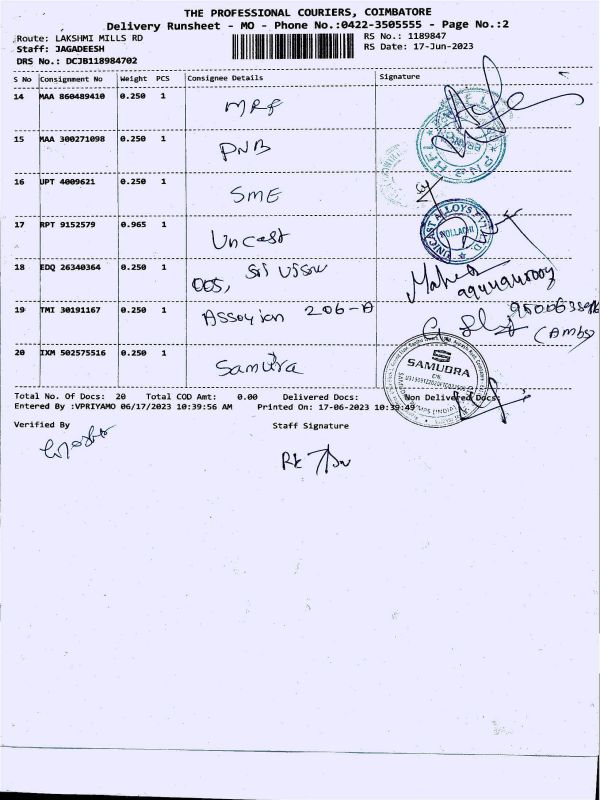 THE PROFESSIONAL COURIERS, COIMBATORE
Delivery Runsheet - MO - Phone No.:0422-3505555 - Page No.:2
Route: LAKSHMI MILLS RD
RS No.: 1189847
Staff: JAGADEESH
RS Date: 17-Jun-2023
DRS No.: DCJB118984702
S No Consignment No Weight PCS Consignee Details Signature
14 MAA 860489410 0.250 1 MRF
15 MAA 300271098 0.250 1 PNB
16 UPT 4009621 0.250 1 SME
17 RPT 9152579 0.965 1 Uncast
UNICAST ALLOYS PVT. LTD.
POLLACHI
18 EDQ 26340364 0.250 1 005, Sri Visnu
Mahesh
19 TMI 30191167 0.250 1 206-A
(Ambs)
20 IXM 502575516 0.250 1 Samudra
SAMUDRA
Total No. Of Docs: 20 Total COD Amt: 0.00 Delivered Docs: Non Delivered Docs:
Entered By :VPRIYAMO 06/17/2023 10:39:56 AM Printed On: 17-06-2023 10:39:49
Verified By Staff Signature